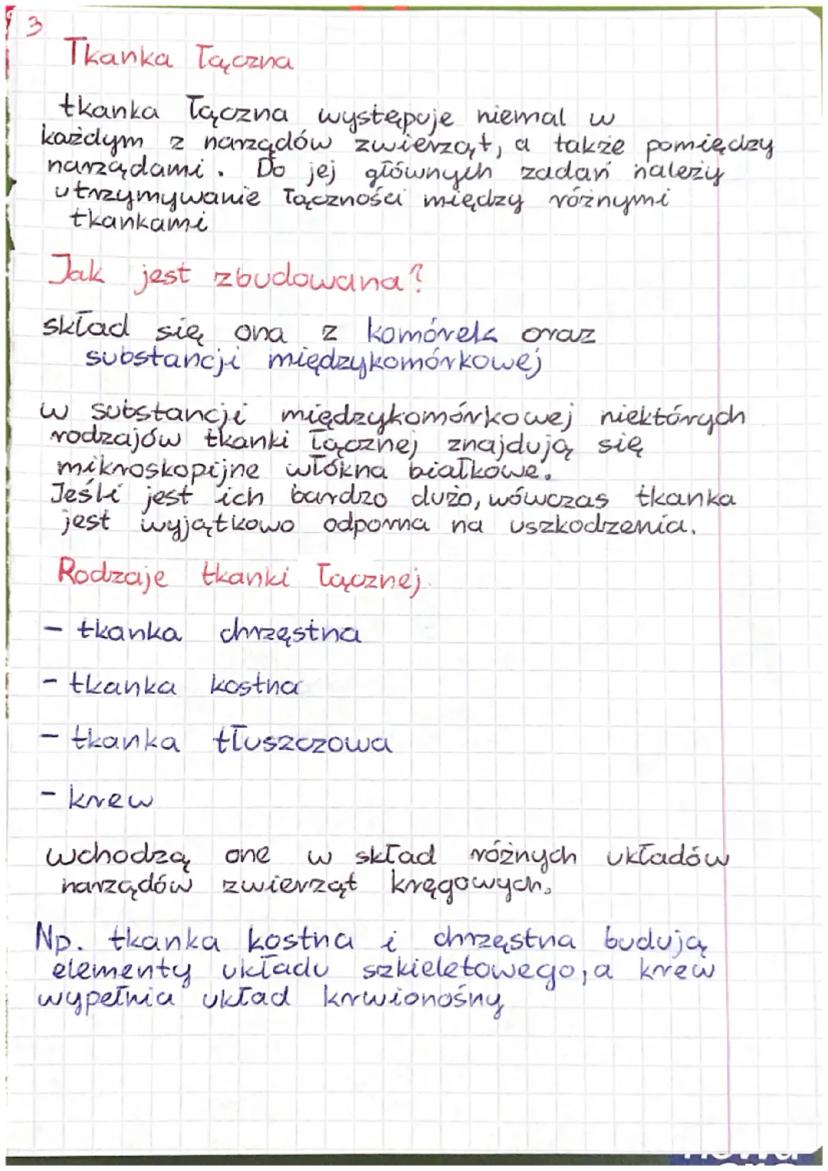 3
Tkanka łączna
tkanka łączna występuje niemal w
każdym z narządów zwierząt, a także pomiędzy
narządami. Do jej głównych zadań należy
utrzymywanie łączności między różnymi
tkankami
Jak jest zbudowana?
skład się ona z komórek oraz
substancji międzykomórkowej
w substancji międzykomórkowej niektórych
rodzajów tkanki łącznej znajdują się
mikroskopijne włókna białkowe.
Jeśli jest ich bardzo dużo, wówczas tkanka
jest wyjątkowo odporna na uszkodzenia.
Rodzaje tkanki łącznej.
- tkanka chrzęstna
- tkanka kostna
- tkanka tłuszczowa
- krew
wchodzą one w skład różnych układów
narządów zwierząt kręgowych.
Np. tkanka kostna i chrzęstna budują
elementy układu szkieletowego, a krew
wypełnia układ krwionośny